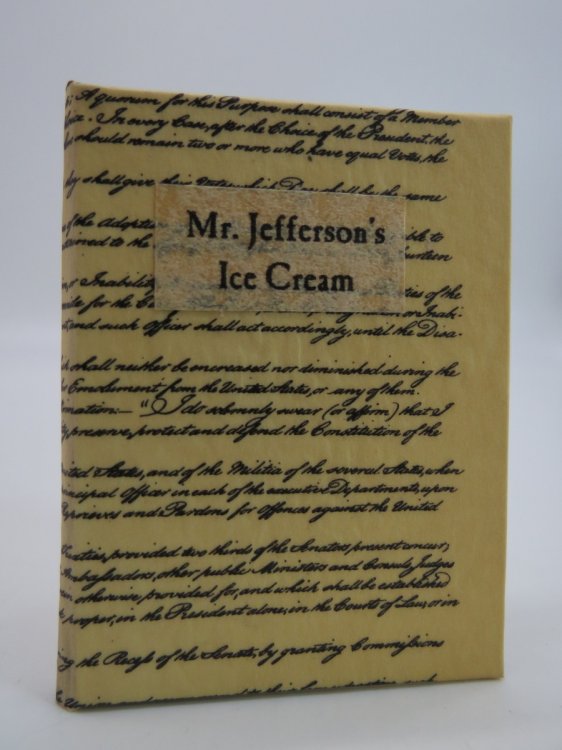 A quorum for this Purpose shall consist of a Member
In every Case, after the Choice of the President, the
should remain two or more who have equal Votes, the
shall give their Votes which Day shall be the same
Mr. Jefferson's
Ice Cream
of the
to the
or Inability
for the
and such Officer shall act accordingly, until the Disa-
shall neither be encreased nor diminished during the
Emolument from the United States, or any of them.
"I do solemnly swear (or affirm) that I
preserve, protect and defend the Constitution of the
States, and of the Militia of the several States, when
Officer in each of the executive Departments, upon
Reprieves and Pardons for Offences against the United
provided two thirds of the Senators present concur;
Ambassadors, other public Ministers and Consuls, Judges
otherwise provided for, and which shall be established
proper, in the President alone, in the Courts of Law, or in
the Recess of the Senate, by granting Commissions